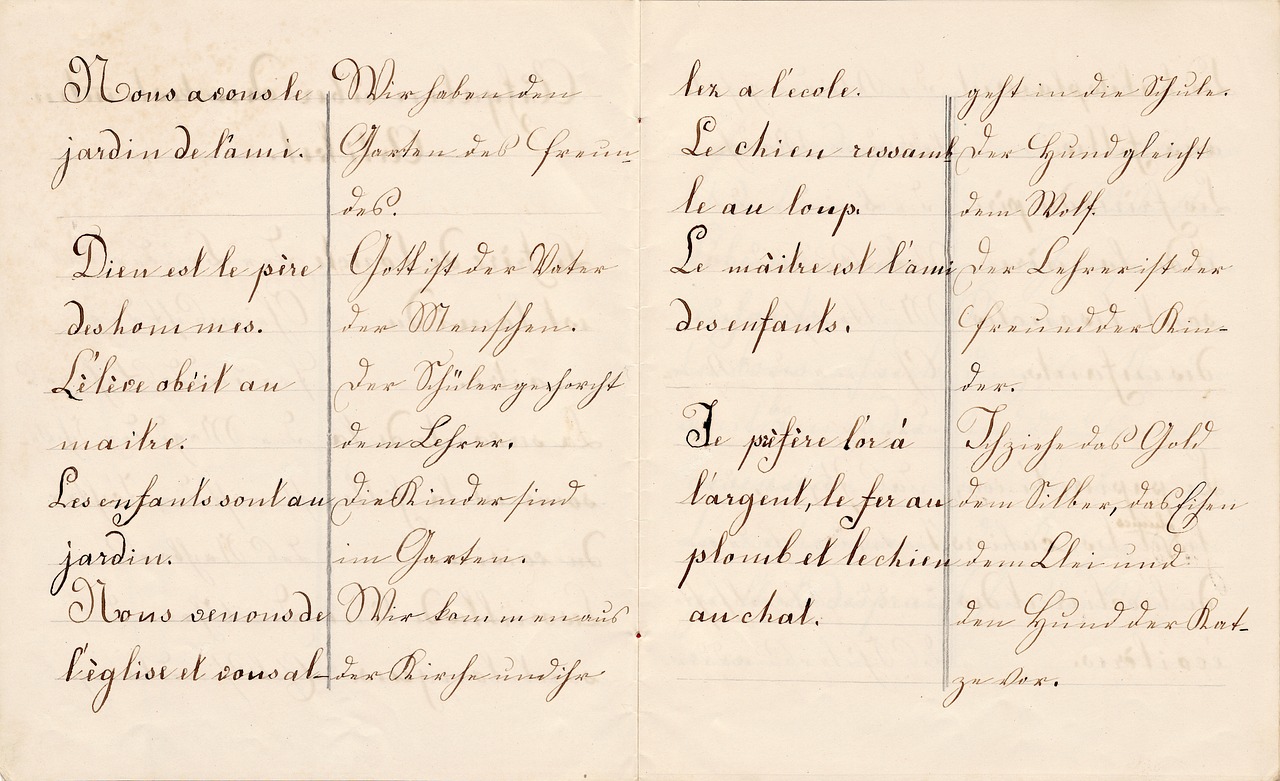 Nous avons le
jardin de l'ami.
Dieu est le père
des hommes.
L'élève obéit au
maitre.
Les enfants sont au
jardin.
Nous venons de
l'église et vous al-
Wir haben den
Garten des Freun-
des.
Gott ist der Vater
der Menschen.
Der Schüler gehorcht
dem Lehrer.
Die Kinder sind
im Garten.
Wir kommen aus
der Kirche und ihr
lez a l'ecole.
Le chien ressamb
le au loup.
Le màitre est l'ami
des enfants.
Je préfère l'or á
l'argent, le fer au
plomb et le chien
au chat.
geht in die Schule.
Der Hund gleicht
dem Wolf.
Der Lehrer ist der
Freund der Kin-
der.
Ich ziehe das Gold
dem Silber, das Eisen
dem Blei und
den Hund der Kat-
ze vor.